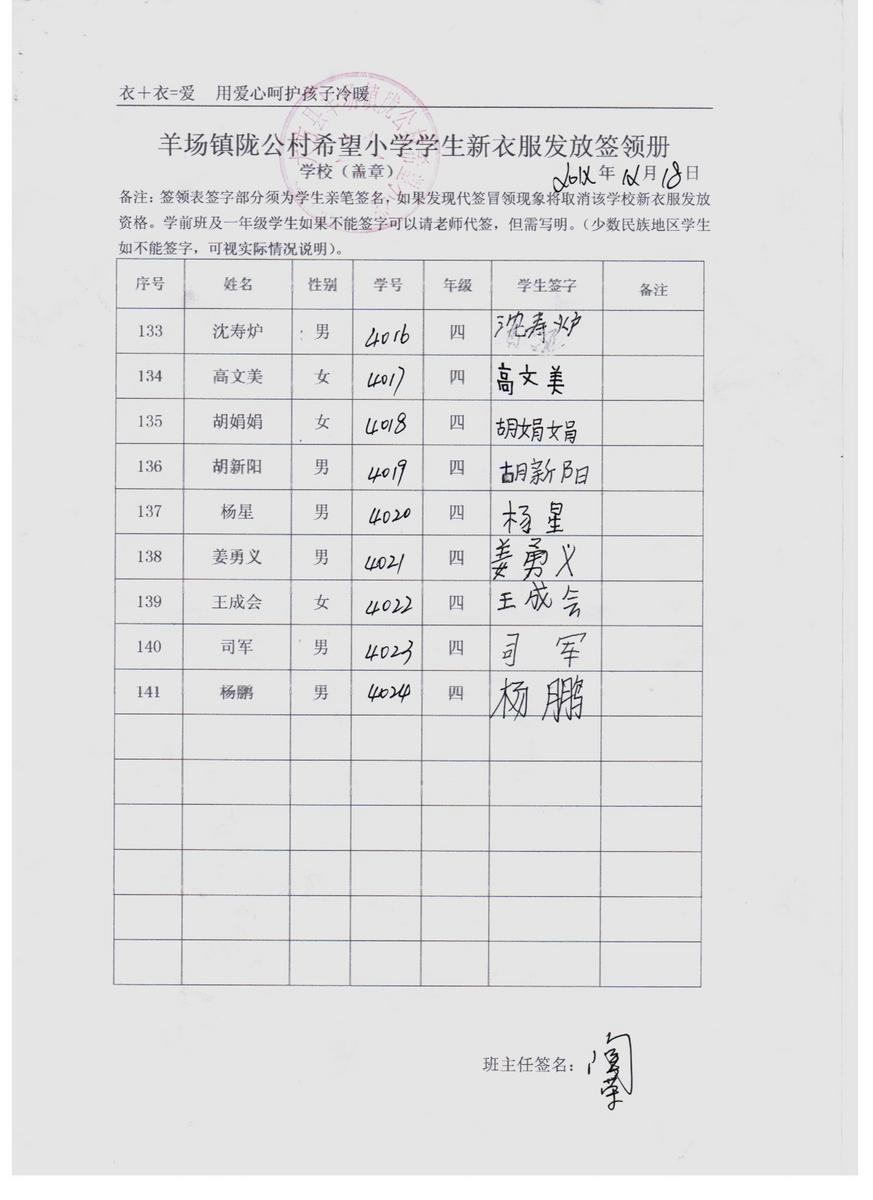 衣+衣=爱 用爱心呵护孩子冷暖
羊场镇陇公村希望小学学生新衣服发放签领册
学校（盖章） 2012年12月18日
备注：签领表签字部分须为学生亲笔签名，如果发现代签冒领现象将取消该学校新衣服发放
资格。学前班及一年级学生如果不能签字可以请老师代签，但需写明。（少数民族地区学生
如不能签字，可视实际情况说明）。
序号 姓名 性别 学号 年级 学生签字 备注
133 沈寿炉 男 4016 四 沈寿炉
134 高文美 女 4017 四 高文美
135 胡娟娟 女 4018 四 胡娟娟
136 胡新阳 男 4019 四 胡新阳
137 杨星 男 4020 四 杨星
138 姜勇义 男 4021 四 姜勇义
139 王成会 女 4022 四 王成会
140 司军 男 4023 四 司军
141 杨鹏 男 4024 四 杨鹏
班主任签名：